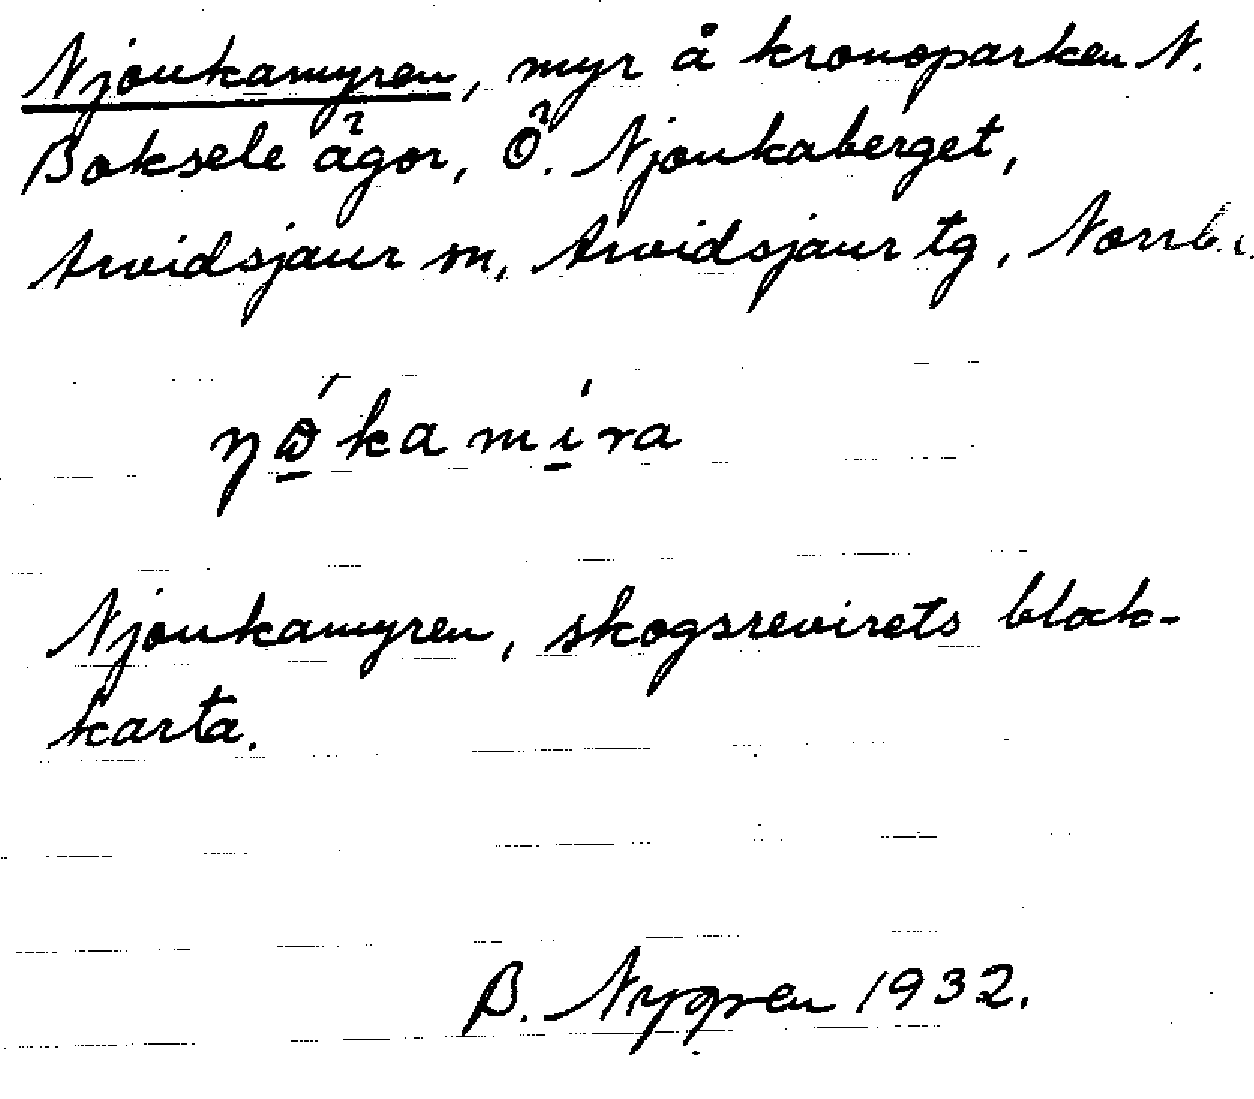 Njoukamyren, myr å kronoparken N.
Boksele ägor, Ö. Njoukaberget,
Arvidsjaur sn, Arvidsjaur tg, Norrb.
Njoukamyren, skogsrevirets block-
karta.
B. Nygren 1932.